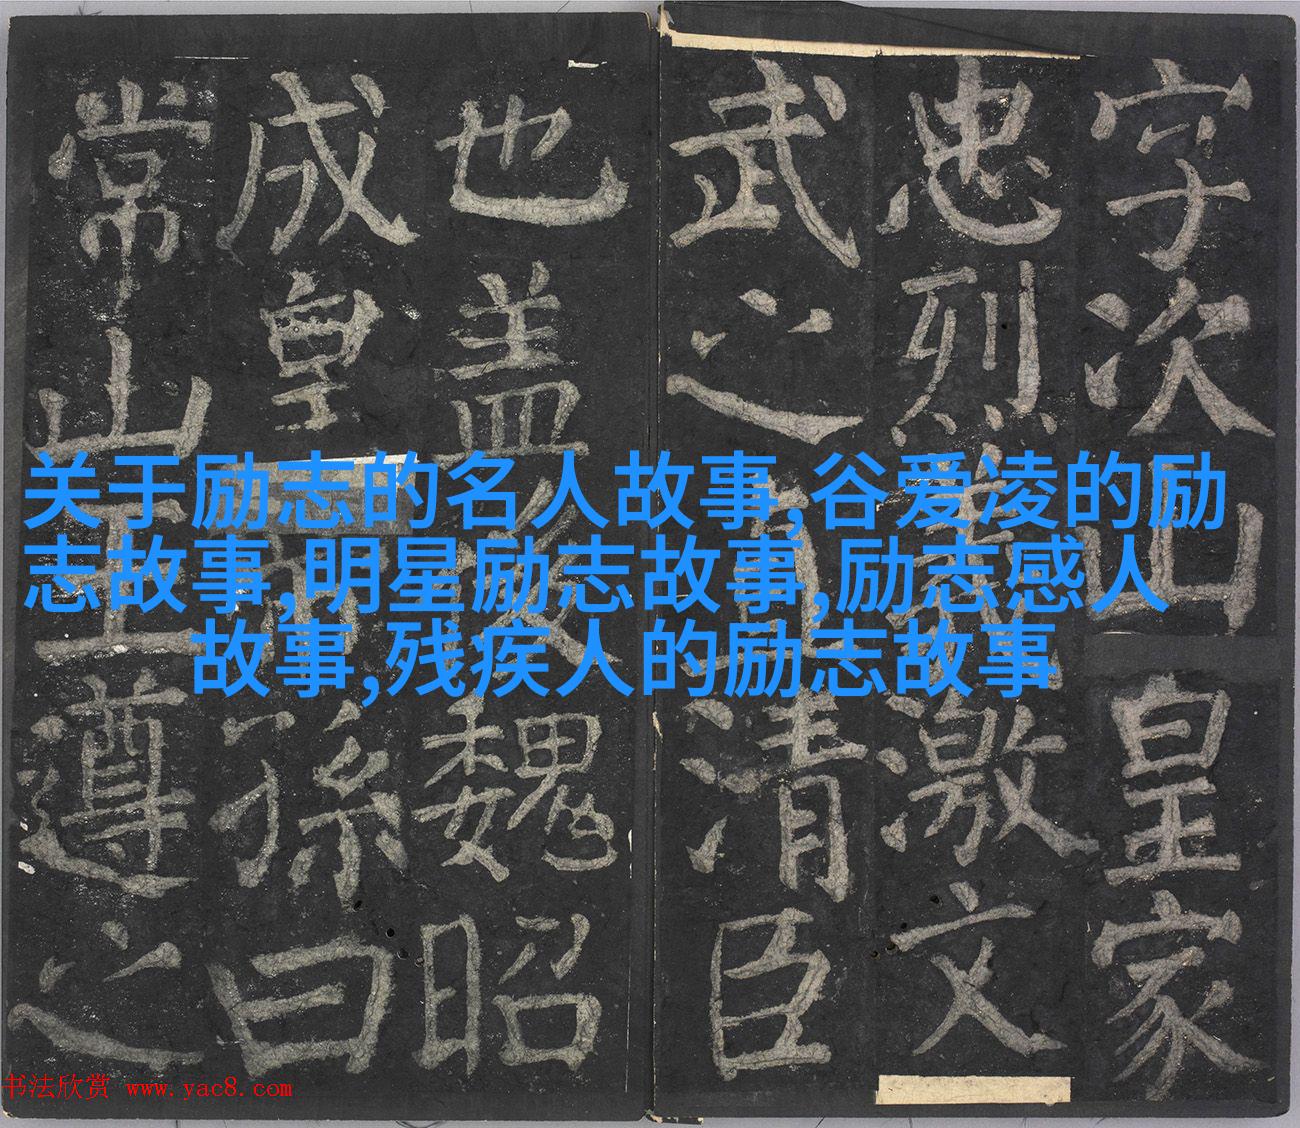 字次山皇家
忠烈激文
武之清臣
也盖魏昭
成皇孫曰
常山王遵之
关于励志的名人故事,谷爱凌的励
志故事,明星励志故事,励志感人
故事,残疾人的励志故事
书法欣赏 www.yac8.com